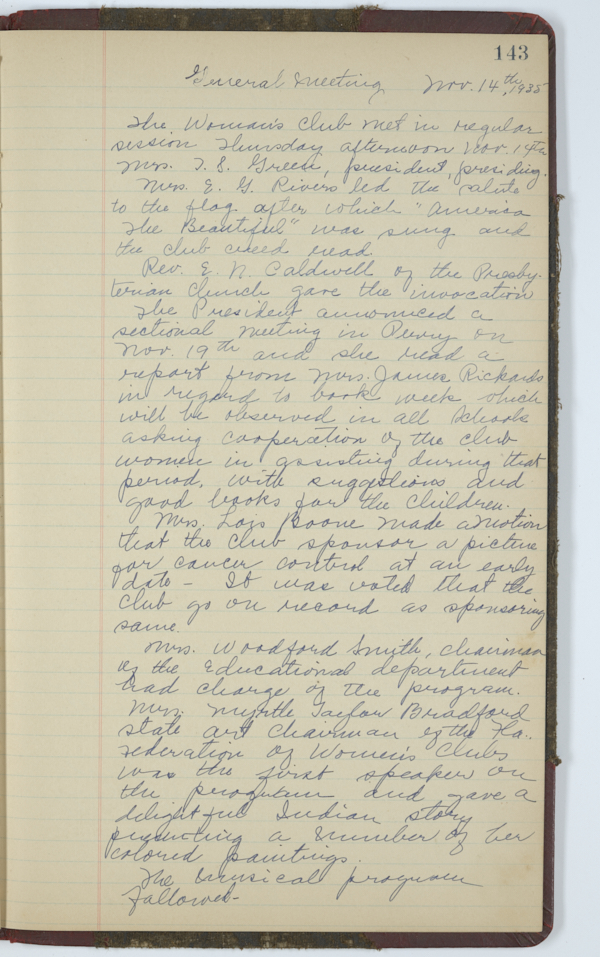 143
General Meeting Nov. 14th, 1935
The Woman's Club met in regular
session Thursday afternoon Nov. 14th
Mrs. T. S. Green, president, presiding.
Mrs. E. G. Rivers led the salute
to the flag after which "America
The Beautiful" was sung and
the club creed read.
Rev. E. N. Caldwell of the Presby-
terian Church gave the invocation
The President announced a
sectional meeting in Perry on
Nov. 19th and she read a
report from Mrs. James Rickards
in regard to book week which
will be observed in all schools
asking cooperation of the club
women in assisting during that
period, with suggestions and
good books for the children.
Mrs. Lois Boone made a motion
that the club sponsor a picture
for cancer control at an early
date - It was voted that the
Club go on record as sponsoring
same.
Mrs. Woodford Smith, chairman
of the Educational department
had charge of the program.
Mrs. Myrtle Taylor Bradford
state art chairman of the Fla.
Federation of Women's Clubs
was the first speaker on
the program and gave a
delightful Indian story
presenting a number of her
colored paintings.
The musical program
followed-